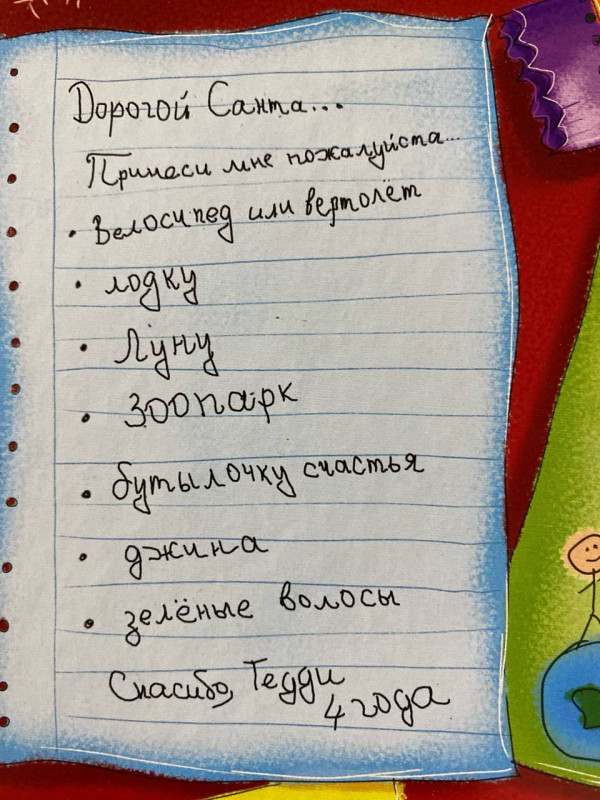 Дорогой Санта...
Принеси мне пожалуйста...
• Велосипед или вертолёт
• лодку
• Луну
• Зоопарк
• бутылочку счастья
• джина
• зелёные волосы
Спасибо, Тедди
4 года